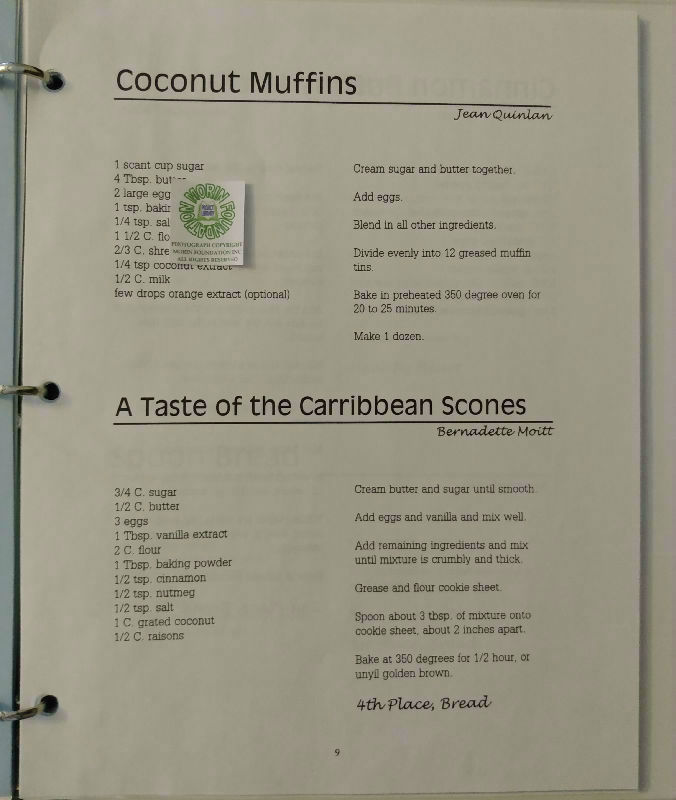 Coconut Muffins
Jean Quinlan
1 scant cup sugar
4 Tbsp.
2 large
1 tsp.
1/4 tsp.
1 1/2 C.
2/3 C.
1/4 tsp coconut extract
1/2 C. milk
few drops orange extract (optional)
MORIN FOUNDATION
PROJECT
LIBRARY
PHOTOGRAPH COPYRIGHT
MORIN FOUNDATION INC.
ALL RIGHTS RESERVED
Cream sugar and butter together.
Add eggs.
Blend in all other ingredients.
Divide evenly into 12 greased muffin
tins.
Bake in preheated 350 degree oven for
20 to 25 minutes.
Make 1 dozen.
A Taste of the Carribbean Scones
Bernadette Moitt
3/4 C. sugar
1/2 C. butter
3 eggs
1 Tbsp. vanilla extract
2 C. flour
1 Tbsp. baking powder
1/2 tsp. cinnamon
1/2 tsp. nutmeg
1/2 tsp. salt
1 C. grated coconut
1/2 C. raisons
Cream butter and sugar until smooth.
Add eggs and vanilla and mix well.
Add remaining ingredients and mix
until mixture is crumbly and thick.
Grease and flour cookie sheet.
Spoon about 3 tbsp. of mixture onto
cookie sheet, about 2 inches apart.
Bake at 350 degrees for 1/2 hour, or
unyil golden brown.
4th Place, Bread
9